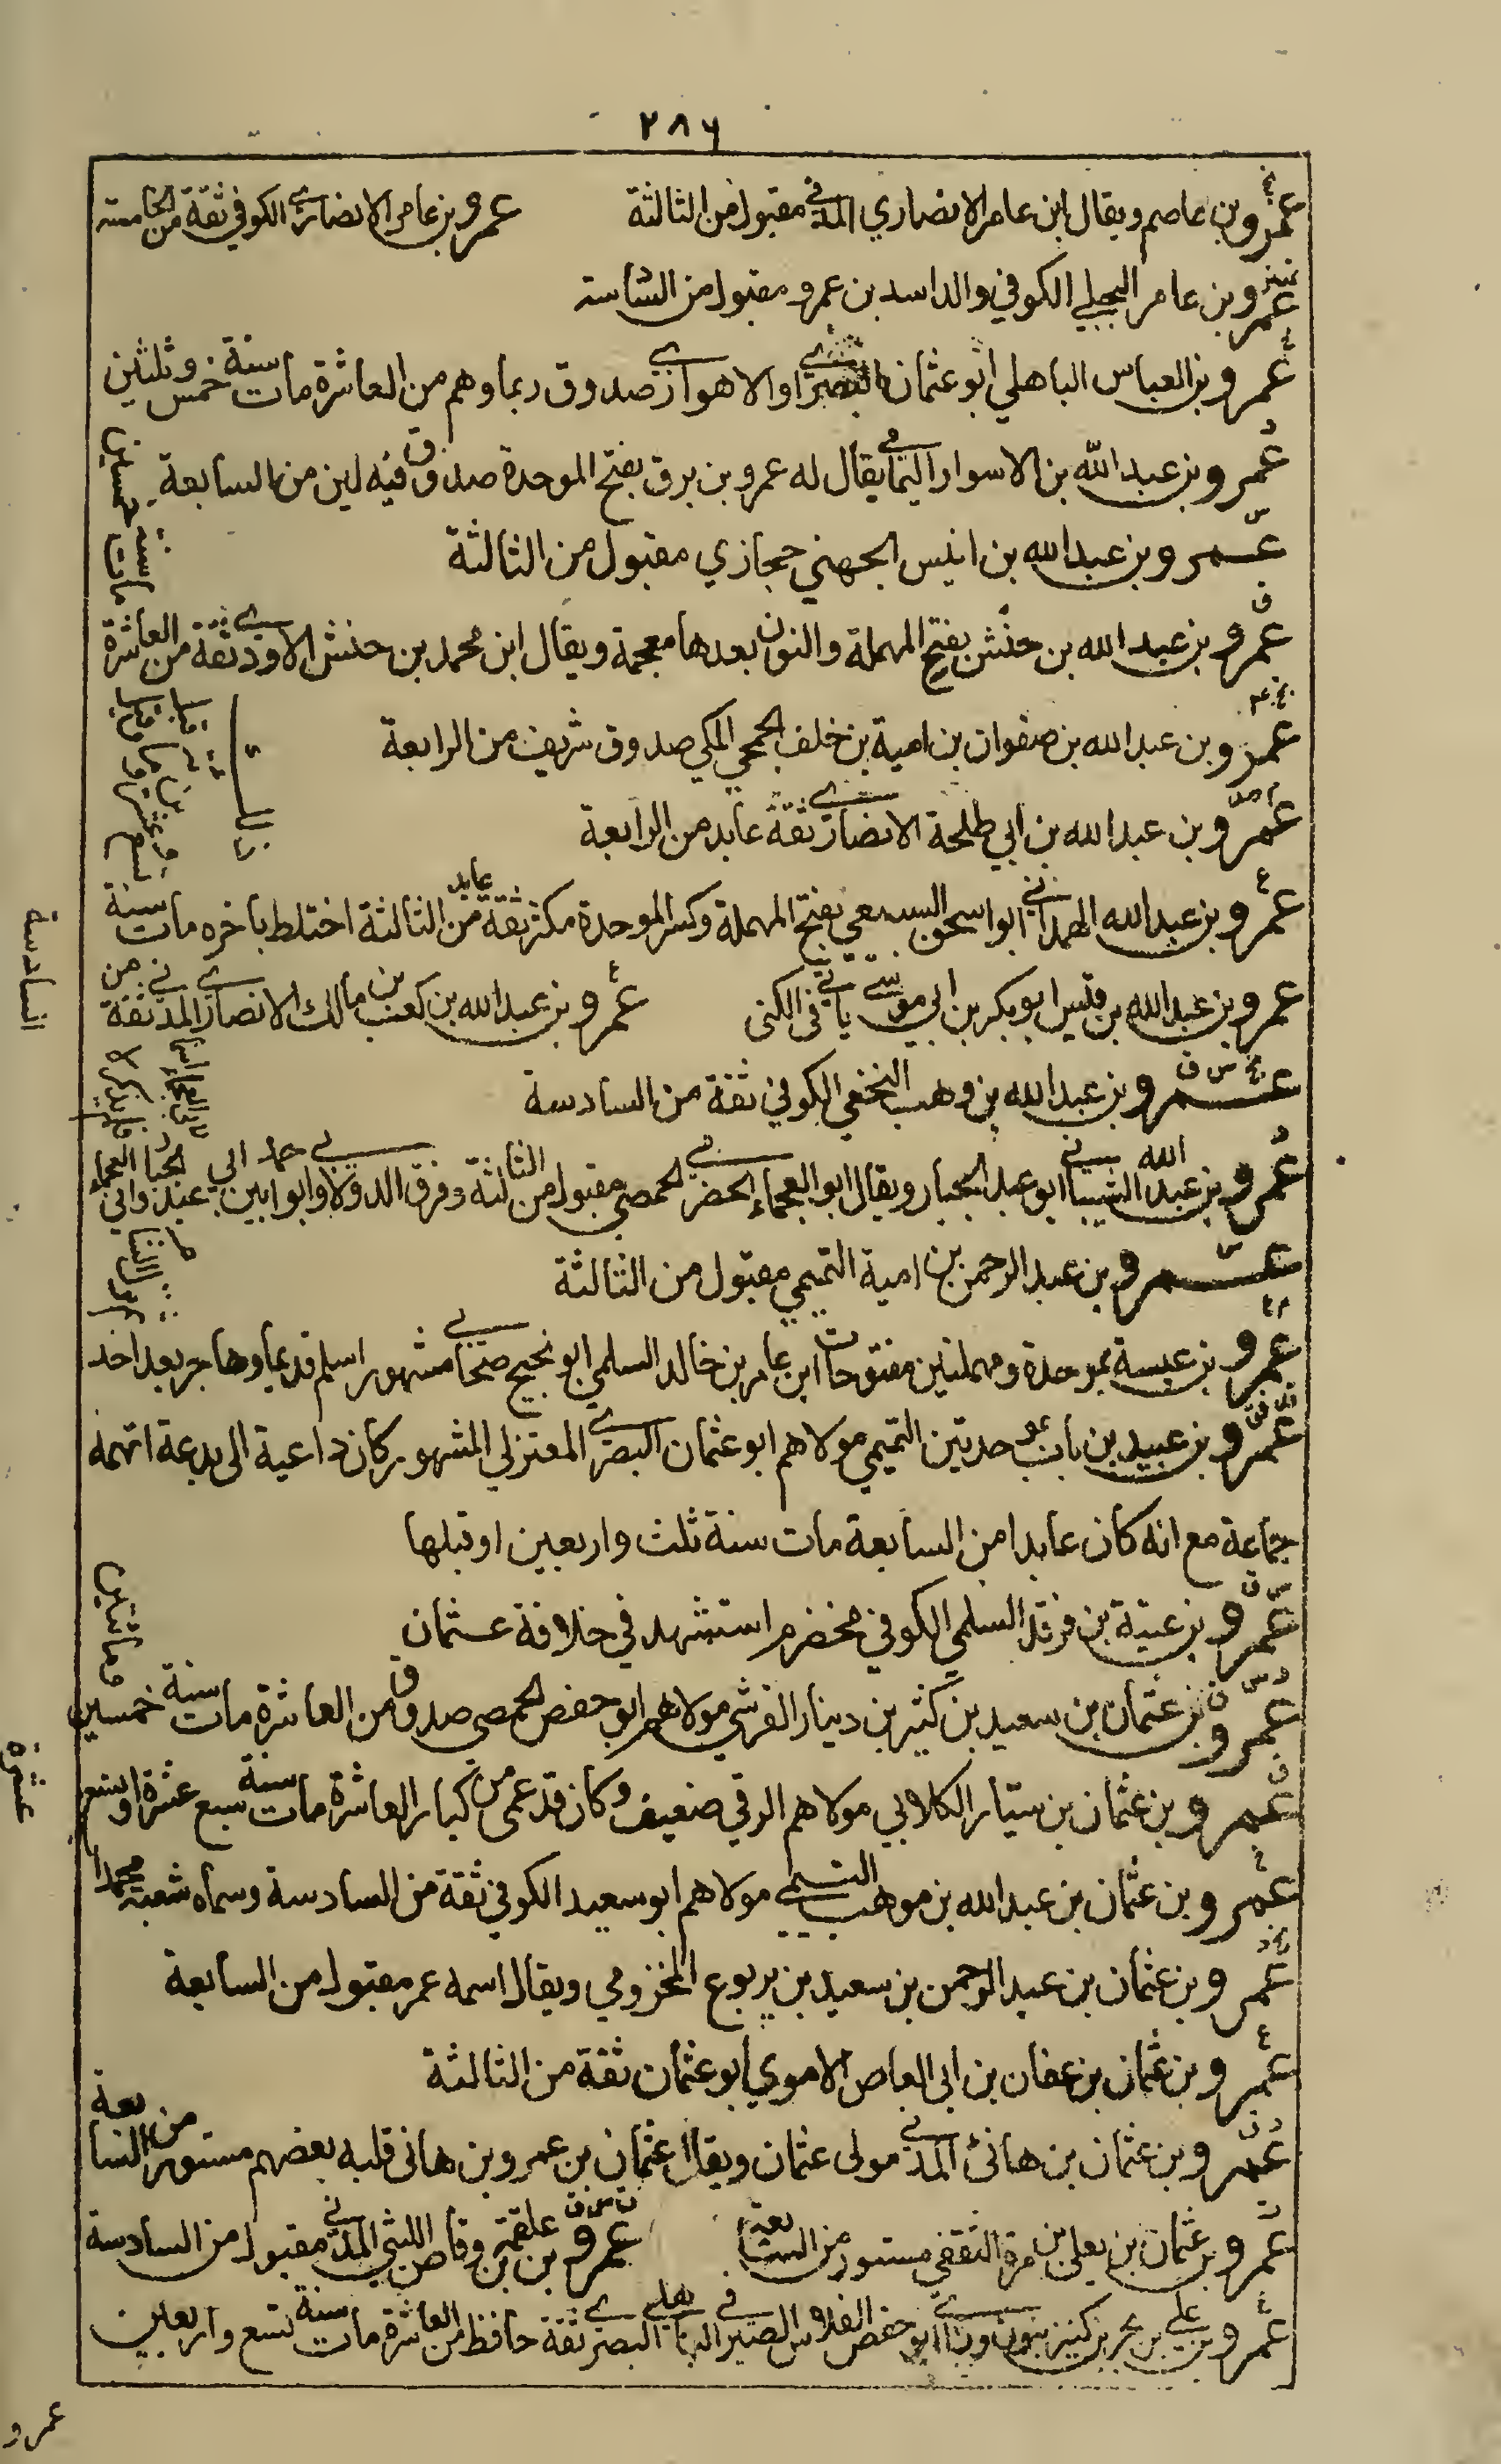 ٢٨٦
عمرو بن عاصم ويقال ابن عامر الانصاري المدني مقبول من الثالثة عمرو بن عامر الانصاري الكوفي ثقة من الخامسة
عمرو بن عامر البجلي الكوفي والد اسد بن عمرو مقبول من السادسة
عمرو بن العباس الباهلي ابو عثمان البصري او الاهوازي صدوق ربما وهم من العاشرة مات سنة خمس وثلثين
عمرو بن عبد الله بن الاسوار اليماني يقال له عمرو بن برق بفتح الموحدة صدوق فيه لين من السابعة
عمرو بن عبد الله بن انيس الجهني حجازي مقبول من الثالثة
عمرو بن عبد الله بن حنش بفتح المهملة والنون بعدها معجمة ويقال ابن محمد بن حنش الاودي ثقة من العاشرة
مات سنة خمسين
عمرو بن عبد الله بن صفوان بن امية بن خلف الجمحي المكي صدوق شريف من الرابعة
عمرو بن عبد الله بن ابي طلحة الانصاري ثقة عابد من الرابعة
عمرو بن عبد الله الهمداني ابو اسحق السبيعي بفتح المهملة وكسر الموحدة مكثر ثقة عابد من الثالثة اختلط باخره مات سنة
تسع وعشرين وماية وقيل قبل ذلك
عمرو بن عبد الله بن قيس ابو بكر بن ابي موسى ياتي في الكنى عمرو بن عبد الله بن كعب بن مالك الانصاري المدني ثقة من
السادسة
عمرو بن عبد الله بن وهب النخعي الكوفي ثقة من السادسة
عمرو بن عبد الله الشيباني ابو عبد الجبار ويقال ابو العجماء الحضرمي الحمصي مقبول من الثالثة وفرق الدولابي وابو احمد بين ابي عبد الجبار وابي العجماء
عمرو بن عبد الرحمن بن امية التميمي مقبول من الثالثة
عمرو بن عبسة بموحدة ومهملتين مفتوحات ابن عامر بن خالد السلمي ابو نجيح صحابي مشهور اسلم قديما وهاجر بعد احد
عمرو بن عبيد بن باب بموحدتين التميمي مولاهم ابو عثمان البصري المعتزلي المشهور كان داعية الى بدعة اتهمه
جماعة مع انه كان عابدا من السابعة مات سنة ثلث واربعين او قبلها
عمرو بن عتبة بن فرقد السلمي الكوفي مخضرم استشهد في خلافة عثمان
عمرو بن عثمان بن سعيد بن كثير بن دينار القرشي مولاهم ابو حفص الحمصي صدوق من العاشرة مات سنة خمسين
ومائتين
عمرو بن عثمان بن سيار الكلابي مولاهم الرقي ضعيف وكان قد عمي من كبار العاشرة مات سنة سبع عشرة او تسع
عشرة
عمرو بن عثمان بن عبد الله بن موهب التيمي مولاهم ابو سعيد الكوفي ثقة من السادسة وسماه شعبة محمدا
عمرو بن عثمان بن عبد الرحمن بن سعيد بن يربوع المخزومي ويقال اسمه عمر مقبول من السابعة
عمرو بن عثمان بن عفان بن ابي العاص الاموي ابو عثمان ثقة من الثالثة
عمرو بن عثمان بن هانئ المدني مولى عثمان ويقال عثمان بن عمرو بن هانئ قلبه بعضهم مستور من السابعة
عمرو بن عثمان بن يعلى بن مرة الثقفي مستور من السابعة عمرو بن علقمة بن وقاص الليثي المدني مقبول من السادسة
عمرو بن علي بن بحر بن كنيز بنون وزاي ابو حفص الفلاس الصيرفي الباهلي البصري ثقة حافظ من العاشرة مات سنة تسع واربعين
عمرو